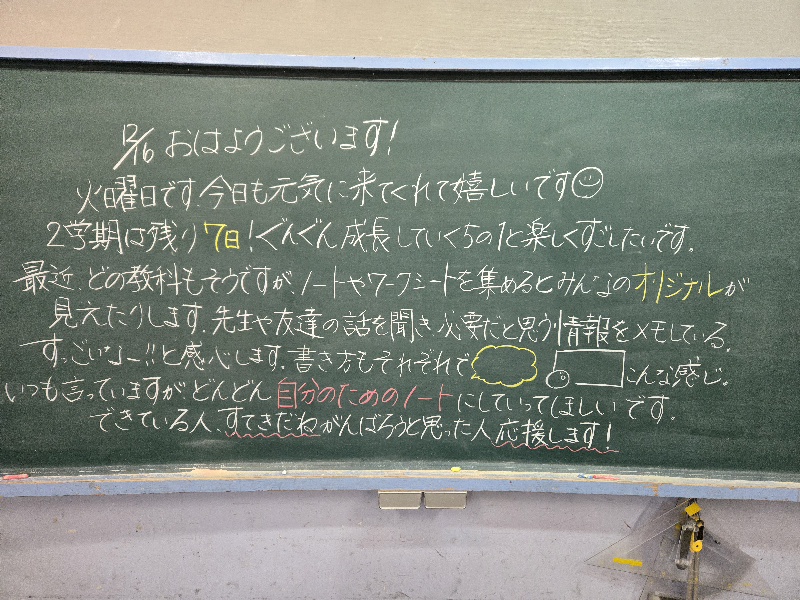 12/16 おはようございます!
火曜日です。今日も元気に来てくれて嬉しいです
2学期は残り7日!ぐんぐん成長していくちの1と楽しくすごしたいです。
最近、どの教科もそうですが、ノートやワークシートを集めるとみんなのオリジナルが
見えたりします。先生や友達の話を聞き必要だと思う情報をメモしている。
すっごいなー!!と感心します。書き方もそれぞれで こんな感じ。
いつも言っていますが、どんどん自分のためのノートにしていってほしいです。
できている人、すてきだね がんばろうと思った人応援します!